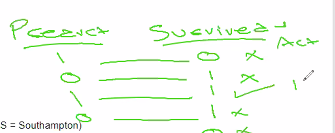 Predict Survived Act
1 0 x
0 1 x
1 1 ✓ 1
0 1 x
S = Southampton) 0 x